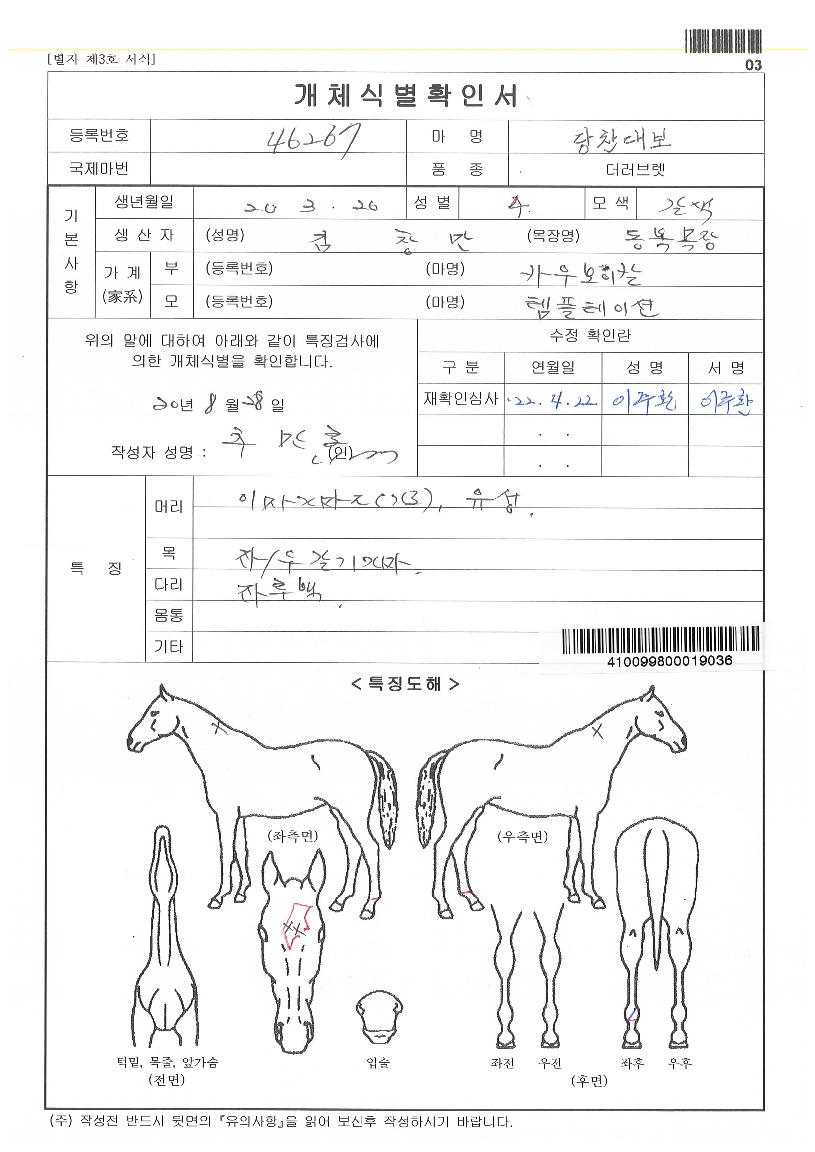 [별지 제3호 서식]
03
개체식별확인서
등록번호 46267 마 명 당찬대보
국제마번 품 종 더러브렛
기본사항
생년월일 20 3 . 26 성 별 수 모 색 갈색
생 산 자 (성명) 김 창 만 (목장명) 동복목장
가 계 (家系)
부 (등록번호) (마명) 카우보이칼
모 (등록번호) (마명) 템플테이션
위의 말에 대하여 아래와 같이 특징검사에
의한 개체식별을 확인합니다.
20년 8월 28일
작성자 성명 : (인)
수정 확인란
구 분 연월일 성 명 서 명
재확인심사 '22. 4. 22 이주환 이주환
. .
. .
특 징
머리 유성.
목 좌/우
다리 좌후백.
몸통
기타
410099800019036
<특징도해>
(좌측면) (우측면)
턱밑, 목줄, 앞가슴 입술 좌전 우전 좌후 우후
(전면) (후면)
(주) 작성전 반드시 뒷면의 『유의사항』을 읽어 보신후 작성하시기 바랍니다.